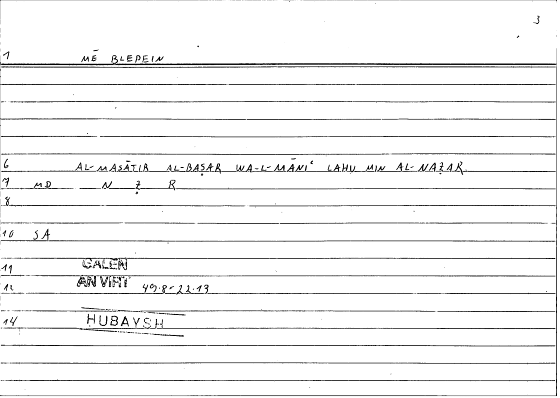 3
1 MĒ BLEPEIN
6 AL-MASĀTIR AL-BAṢAR WA-L-MĀNIʿ LAHU MIN AL-NAẒAR
7 MD N Ẓ R
8
10 SA
11 GALEN
12 AN VIRT 49.8-22.13
14 HUBAYSH